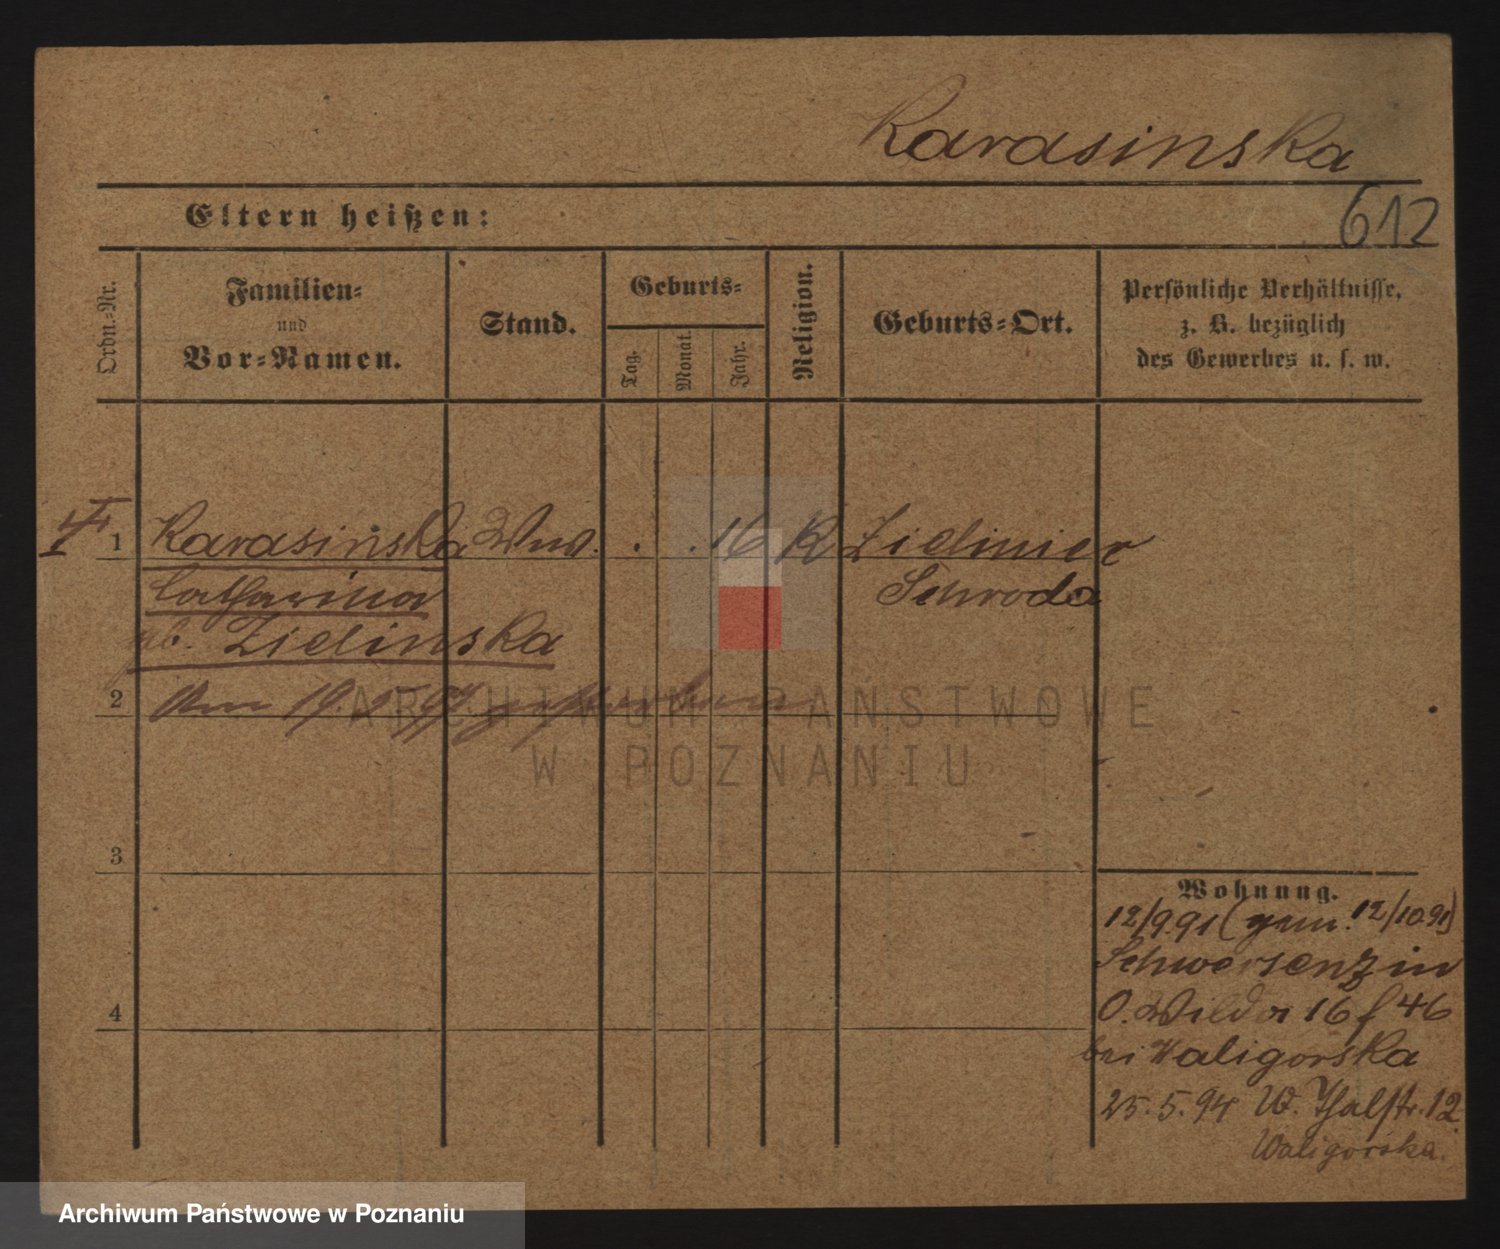 Karasinska
Eltern heißen:
612
Ordn.-Nr.
Familien-
und
Vor-Namen.
Stand.
Geburts-
Tag.
Monat.
Jahr.
Religion.
Geburts-Ort.
Persönliche Verhältnisse,
z. B. bezüglich
des Gewerbes u. s. w.
1 Karasinska Ww. . . 16 K Zieliniec
Catharina Schroda
gb. Zielinska
2 Am 19. 5. 97 gestorben
ARCHIWUM PAŃSTWOWE
W POZNANIU
3
Wohnung.
12/9.91 (gem. 12/10.91)
Schwersenz in
4 O. Wilda 16 f 46
bei Waligorska
25.5.94 W. Thalstr. 12
Waligorska.
Archiwum Państwowe w Poznaniu